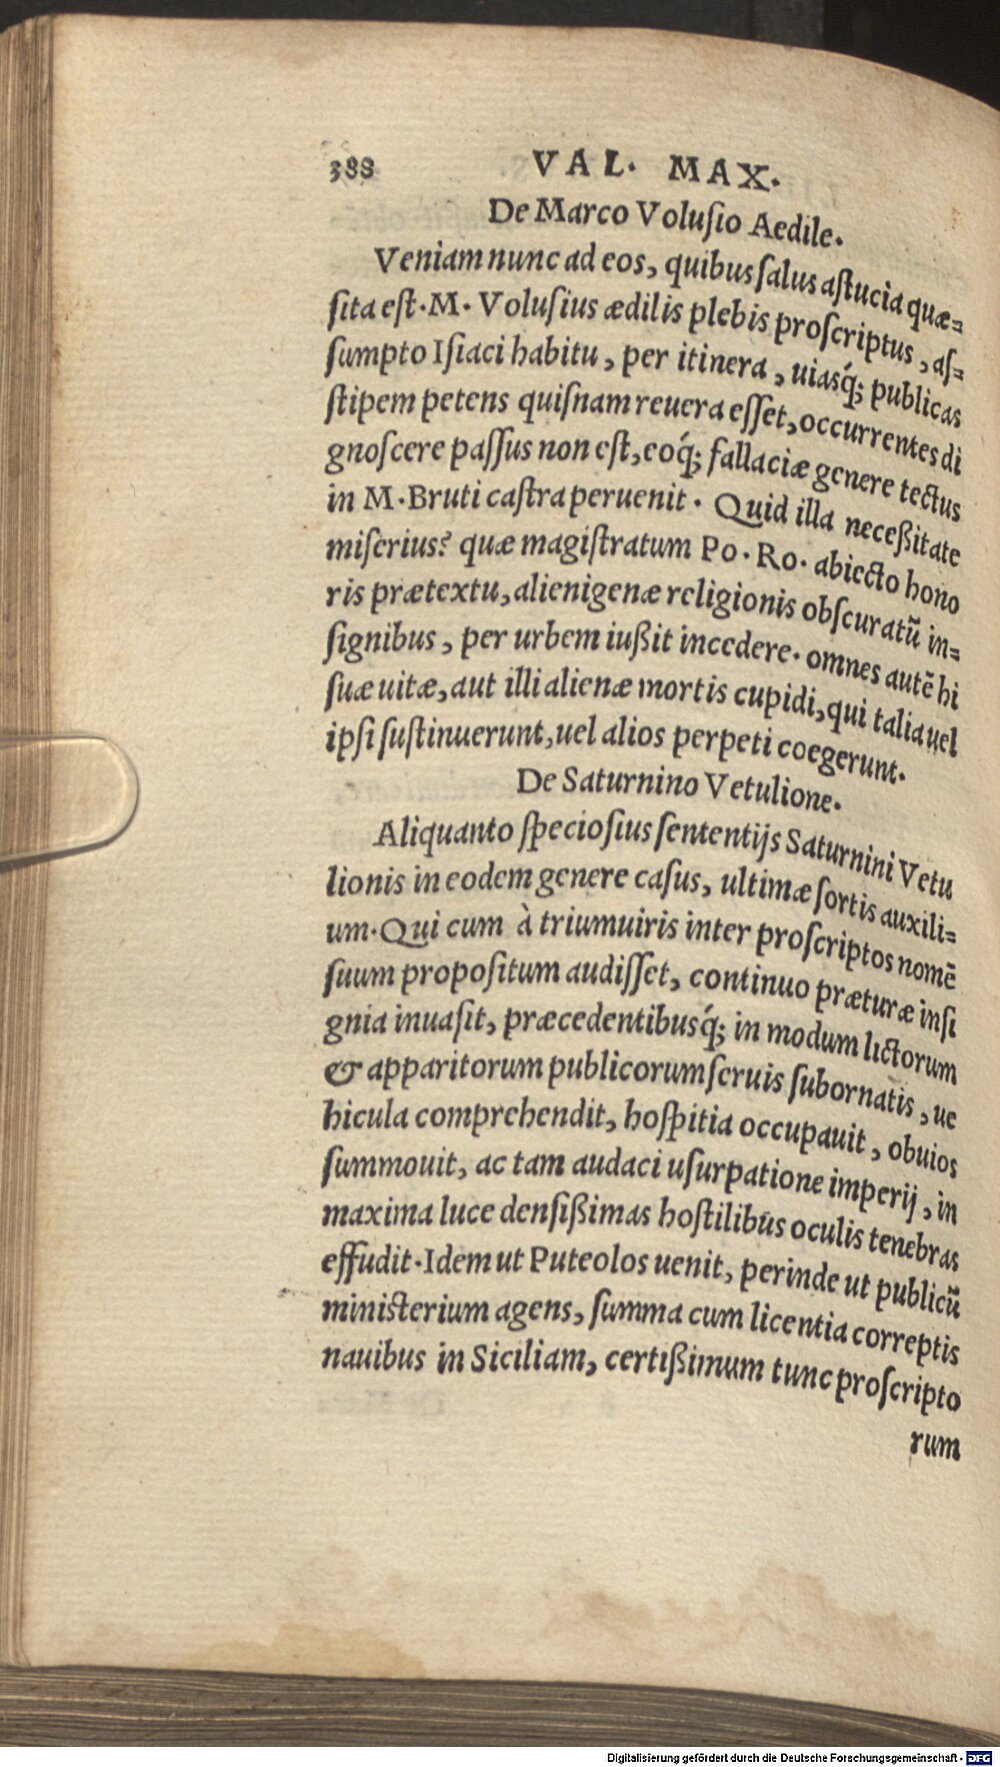 388 VAL. MAX.
De Marco Voluſio Aedile.
Veniam nunc ad eos, quibus ſalus aſtucia quæ-
ſita eſt. M. Voluſius ædilis plebis proſcriptus, aſ-
ſumpto Iſiaci habitu, per itinera, uiasq́; publicas
ſtipem petens quiſnam reuera eſſet, occurrentes di
gnoſcere paſſus non eſt, eoq́; fallaciæ genere tectus
in M. Bruti caſtra peruenit. Quid illa neceßitate
miſerius? quæ magiſtratum Po. Ro. abiecto hono
ris prætextu, alienigenæ religionis obſcuratũ in-
ſignibus, per urbem iußit incedere. omnes autẽ hi
ſuæ uitæ, aut illi alienæ mortis cupidi, qui talia uel
ipſi ſuſtinuerunt, uel alios perpeti coegerunt.
De Saturnino Vetulione.
Aliquanto ſpecioſius ſententijs Saturnini Vetu
lionis in eodem genere caſus, ultimæ ſortis auxili-
um. Qui cum à triumuiris inter proſcriptos nomẽ
ſuum propoſitum audiſſet, continuo præturæ inſi
gnia inuaſit, præcedentibusq́; in modum lictorum
& apparitorum publicorum ſeruis ſubornatis, ue
hicula comprehendit, hoſpitia occupauit, obuios
ſummouit, ac tam audaci uſurpatione imperij, in
maxima luce denſißimas hoſtilibus oculis tenebras
effudit. Idem ut Puteolos uenit, perinde ut publicũ
miniſterium agens, ſumma cum licentia correptis
nauibus in Siciliam, certißimum tunc proſcripto
rum
Digitalisierung gefördert durch die Deutsche Forschungsgemeinschaft - DFG